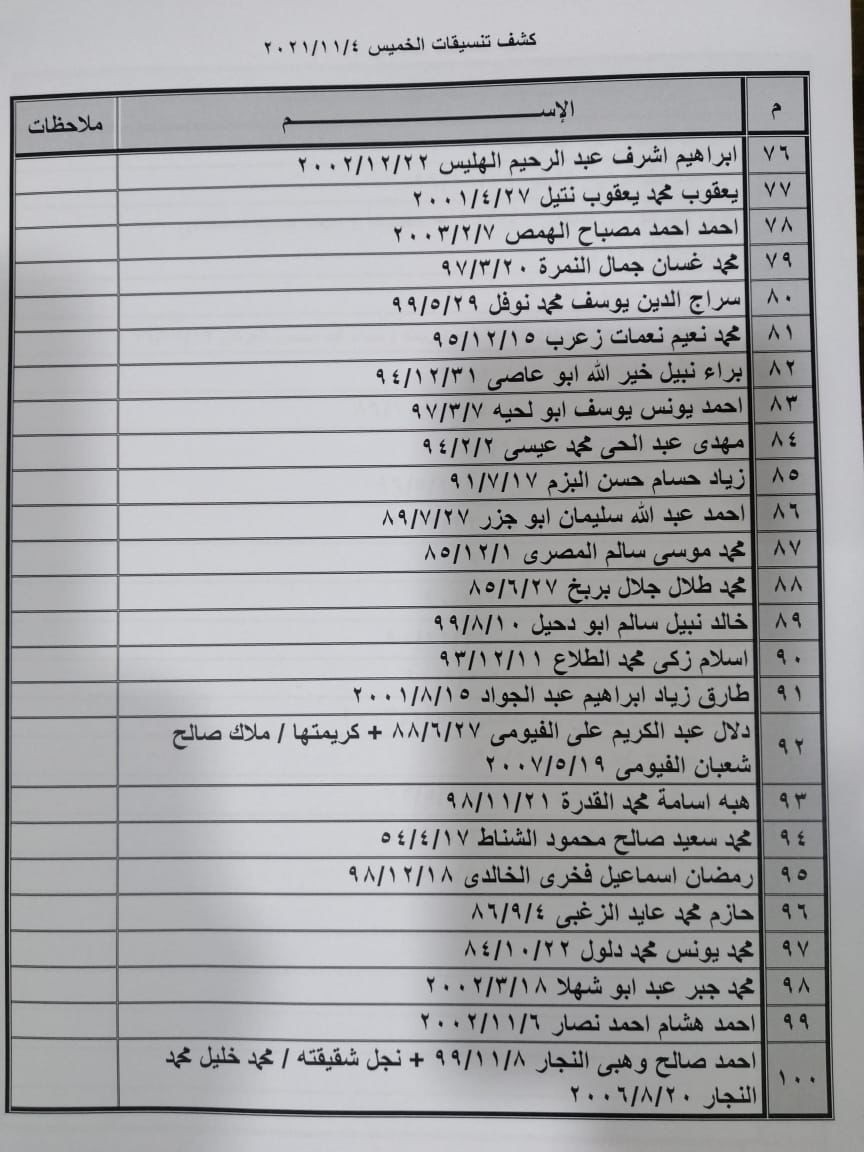 كشف تنسيقات الخميس ٢٠٢١/١١/٤
م الإســــــــم ملاحظات
٧٦ ابراهيم اشرف عبد الرحيم الهليس ٢٠٠٢/١٢/٢٢
٧٧ يعقوب محمد يعقوب نتيل ٢٠٠١/٤/٢٧
٧٨ احمد احمد مصباح الهمص ٢٠٠٣/٢/٧
٧٩ محمد غسان جمال النمرة ٩٧/٣/٢٠
٨٠ سراج الدين يوسف محمد نوفل ٩٩/٥/٢٩
٨١ محمد نعيم نعمات زعرب ٩٥/١٢/١٥
٨٢ براء نبيل خير الله ابو عاصى ٩٤/١٢/٣١
٨٣ احمد يونس يوسف ابو لحيه ٩٧/٣/٧
٨٤ مهدى عبد الحى محمد عيسى ٩٤/٢/٢
٨٥ زياد حسام حسن البزم ٩١/٧/١٧
٨٦ احمد عبد الله سليمان ابو جزر ٨٩/٧/٢٧
٨٧ محمد موسى سالم المصرى ٨٥/١٢/١
٨٨ محمد طلال جلال بربخ ٨٥/٦/٢٧
٨٩ خالد نبيل سالم ابو دحيل ٩٩/٨/١٠
٩٠ اسلام زكى محمد الطلاع ٩٣/١٢/١١
٩١ طارق زياد ابراهيم عبد الجواد ٢٠٠١/٨/١٥
٩٢ دلال عبد الكريم على الفيومى ٨٨/٦/٢٧ + كريمتها / ملاك صالح
شعبان الفيومى ٢٠٠٧/٥/١٩
٩٣ هبه اسامة محمد القدرة ٩٨/١١/٢١
٩٤ محمد سعيد صالح محمود الشناط ٥٤/٤/١٧
٩٥ رمضان اسماعيل فخرى الخالدى ٩٨/١٢/١٨
٩٦ حازم محمد عايد الزغبى ٨٦/٩/٤
٩٧ محمد يونس محمد دلول ٨٤/١٠/٢٢
٩٨ محمد جبر عبد ابو شهلا ٢٠٠٢/٣/١٨
٩٩ احمد هشام احمد نصار ٢٠٠٢/١١/٦
١٠٠ احمد صالح وهبى النجار ٩٩/١١/٨ + نجل شقيقته / محمد خليل محمد
النجار ٢٠٠٦/٨/٢٠